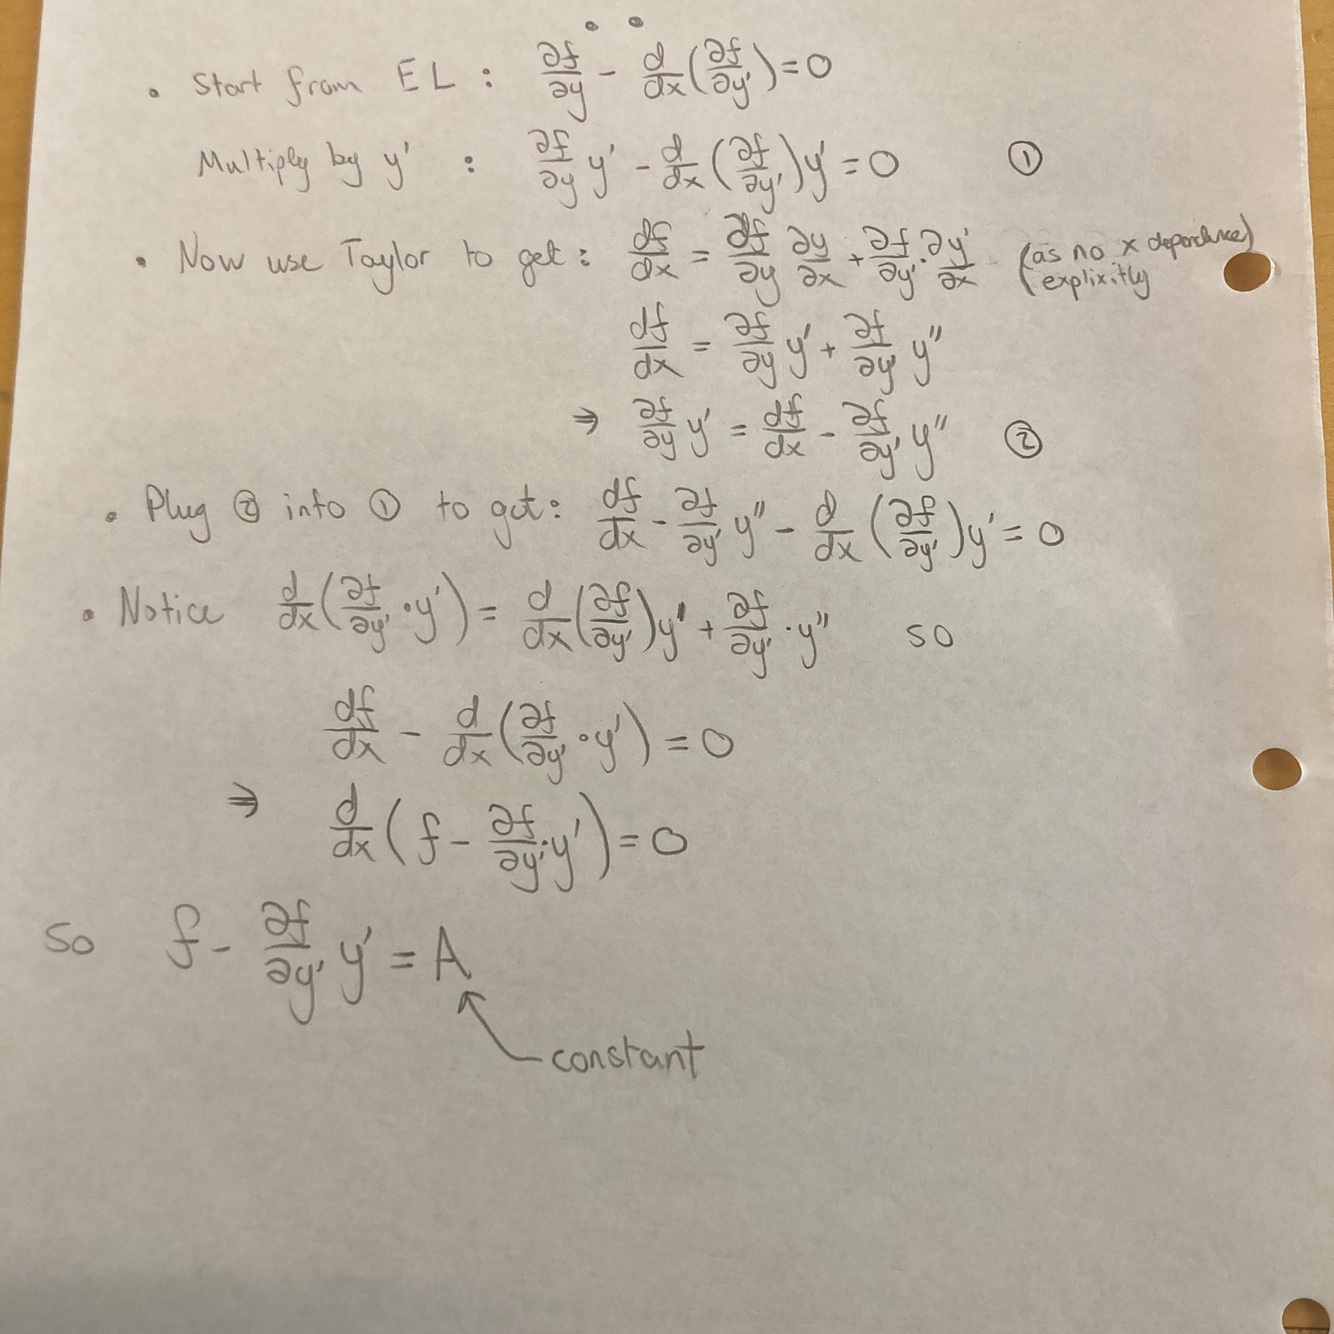 • Start from EL : ∂f/∂y - d/dx(∂f/∂y') = 0
Multiply by y' : ∂f/∂y y' - d/dx(∂f/∂y')y' = 0 ①
• Now use Taylor to get: df/dx = ∂f/∂y ∂y/∂x + ∂f/∂y' · ∂y'/∂x (as no x dependence)
(explixitly
df/dx = ∂f/∂y y' + ∂f/∂y' y''
⇒ ∂f/∂y y' = df/dx - ∂f/∂y' y'' ②
• Plug ② into ① to get: df/dx - ∂f/∂y' y'' - d/dx(∂f/∂y')y' = 0
• Notice d/dx(∂f/∂y' · y') = d/dx(∂f/∂y')y' + ∂f/∂y' · y'' so
df/dx - d/dx(∂f/∂y' · y') = 0
⇒ d/dx(f - ∂f/∂y' · y') = 0
So f - ∂f/∂y' y' = A
constant